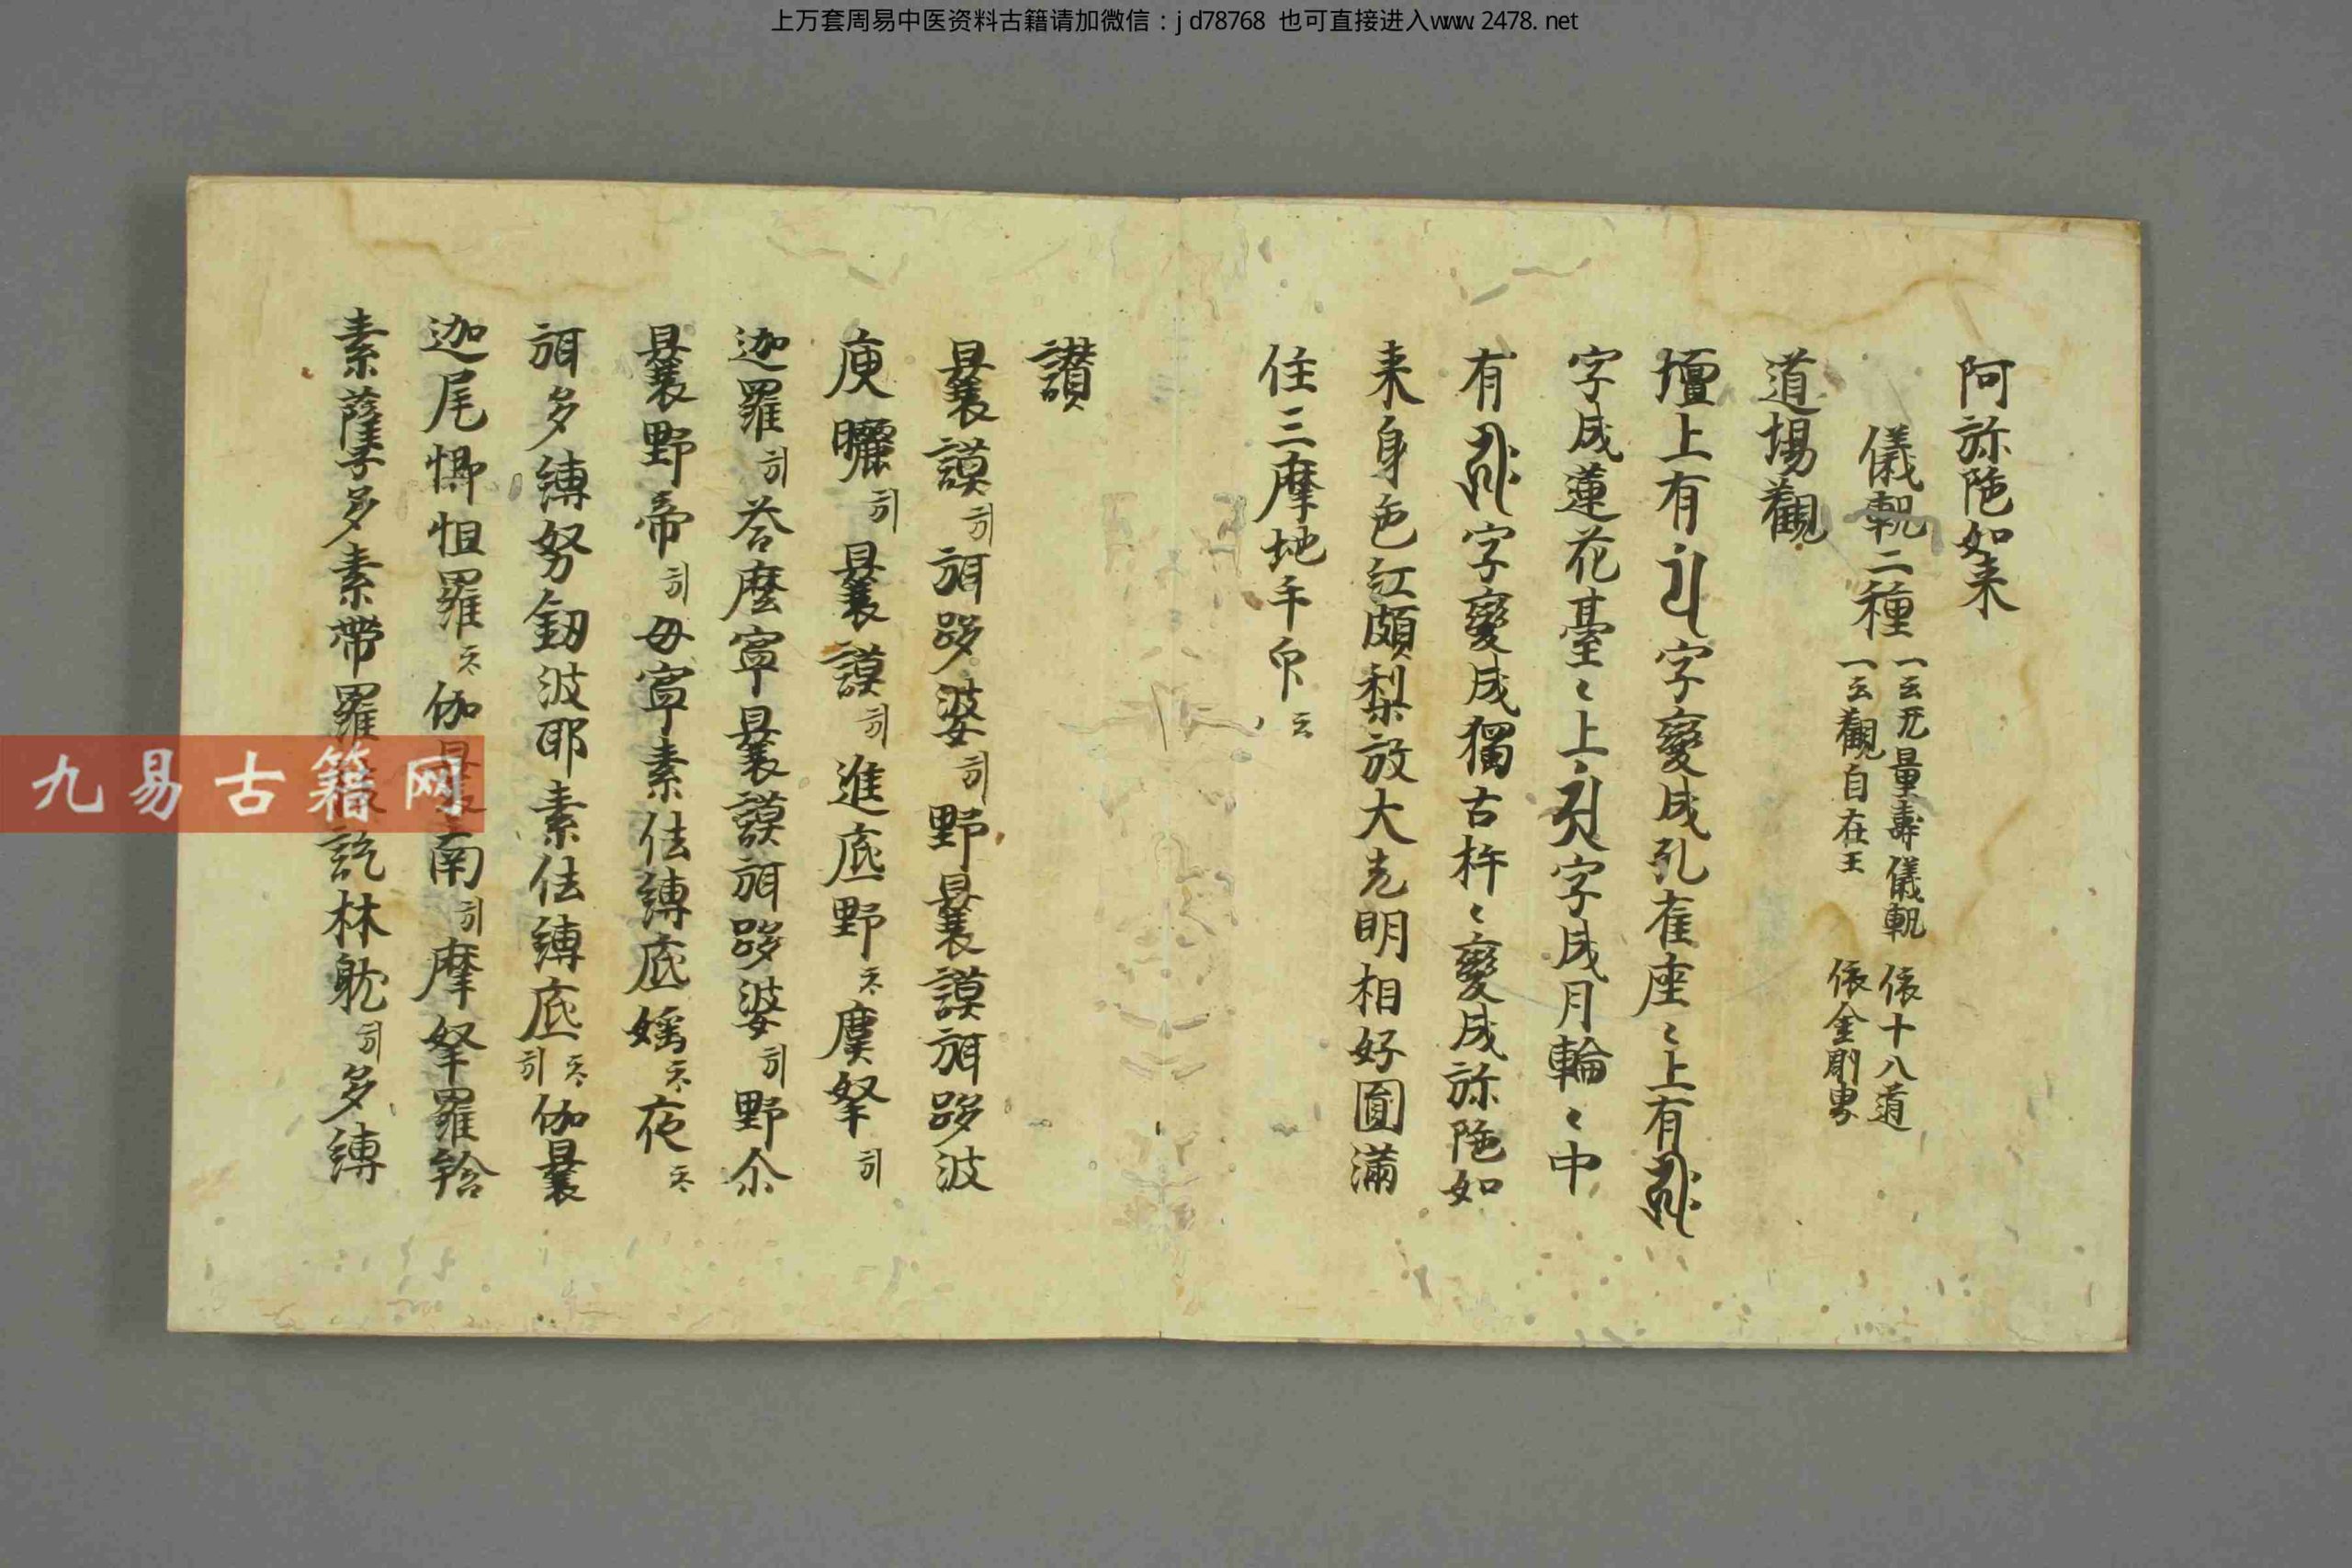 上万套周易中医资料古籍请加微信：jd78768 也可直接进入www.2478.net
阿弥陁如来
儀軌二種 一云无量壽儀軌 依十八道
一云觀自在王 依金剛界
道場觀
壇上有字變成孔雀座〻上有
字成蓮花臺〻上字成月輪〻中
有字變成獨古杵〻變成弥陁如
来身色紅頗梨放大光明相好圓滿
住三摩地手印云
讃
曩謨引弭跢婆引野曩謨弭跢波
庾曬引曩謨引進底野二合虞拏引
迦羅引荅麼寧曩謨弭跢婆引野尒
曩野帝引毋寧素佉縛底二合夜二合
弭多縛努釼波耶素佉縛底二合引伽曩
迦尾惻怚羅二合伽曩南引摩拏羅
素薩多素帶羅訖林躭引多縛
九易古籍网